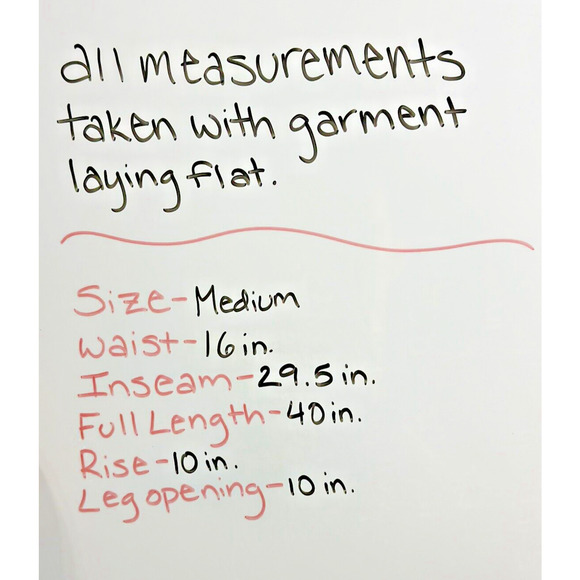 all measurements
taken with garment
laying flat.
Size-Medium
waist-16 in.
Inseam-29.5 in.
Full Length-40 in.
Rise-10 in.
Leg opening-10 in.